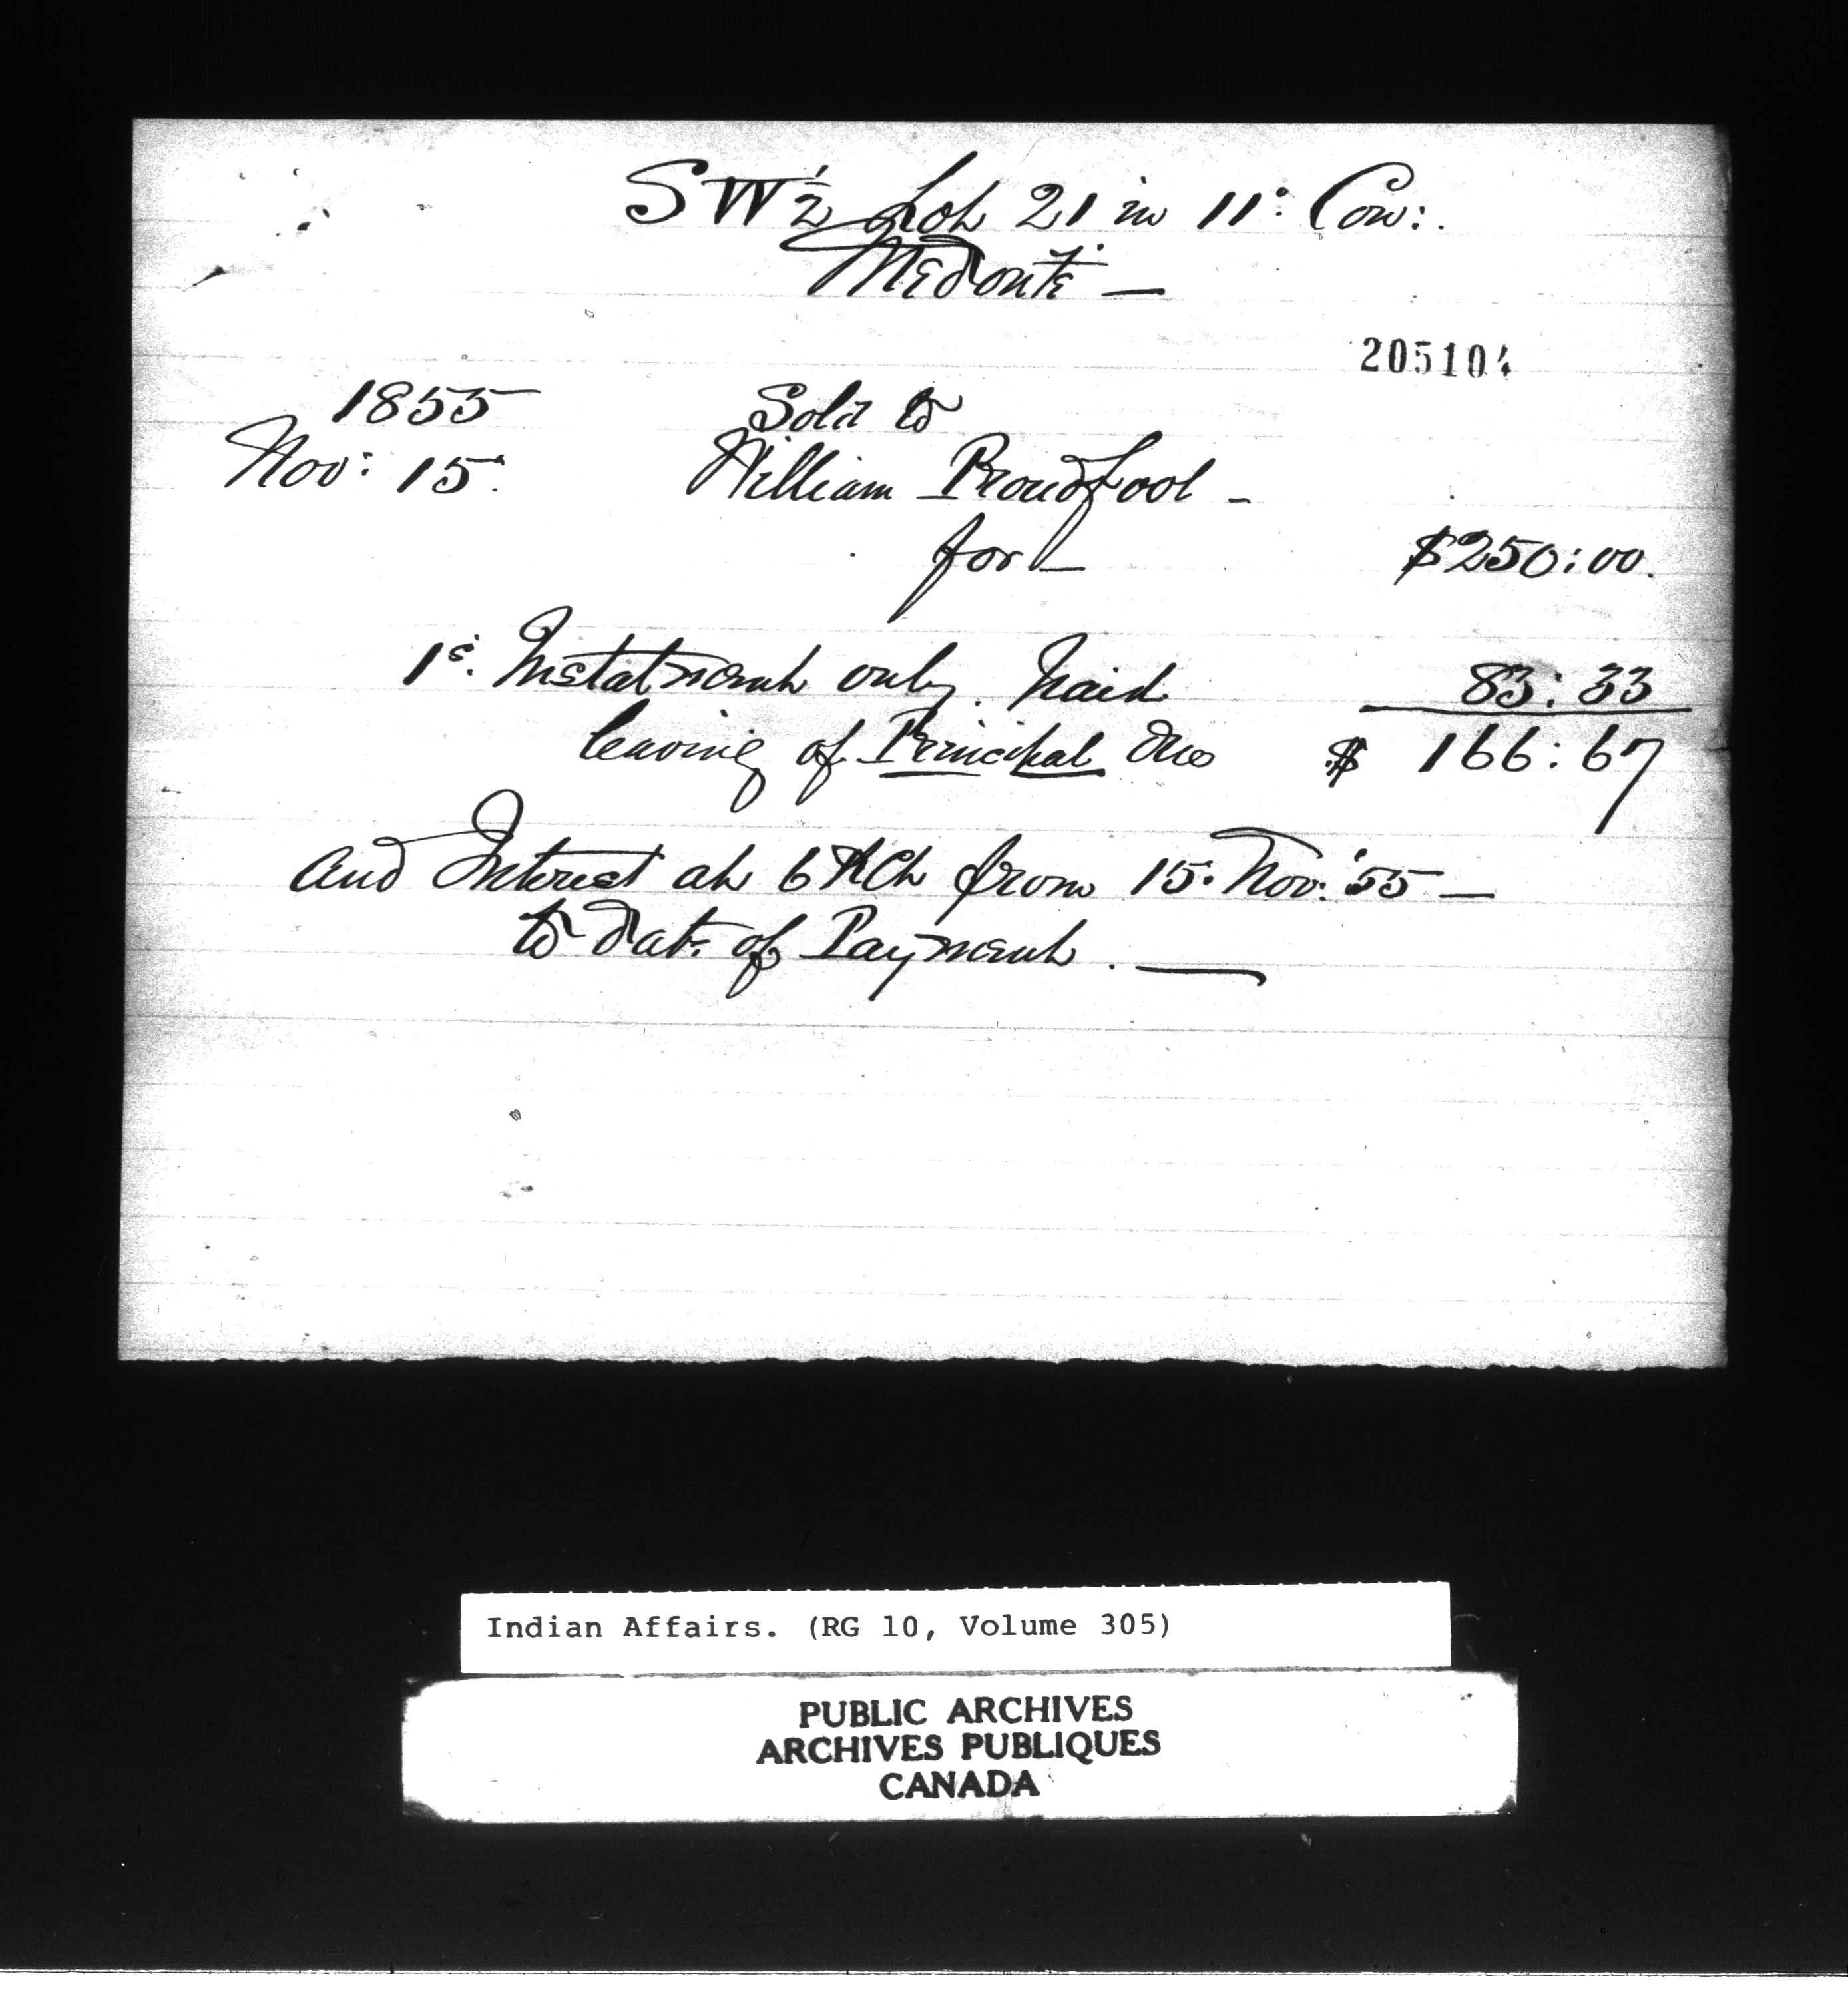 SW ½ Lot 21 in 11: Con:.
Medonte —
205104
1855 Sold to
Nov: 15. William Proudfoot -
for — $250:00.
1s. Instalment only. paid 83:33
leaving of Principal due $ 166:67
and Interest at 6 ⅌ Ct from 15. Nov: '55 —
to date of Payment. —
Indian Affairs. (RG 10, Volume 305)
PUBLIC ARCHIVES
ARCHIVES PUBLIQUES
CANADA